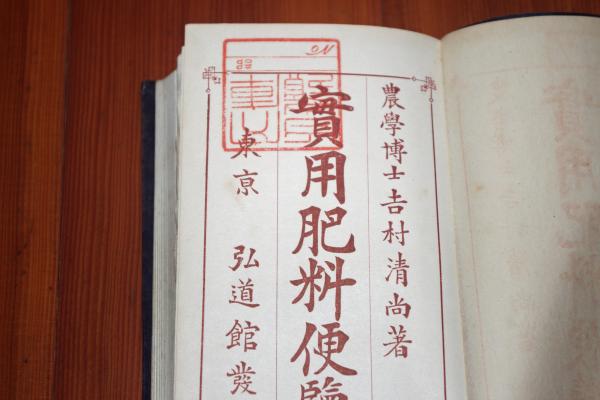 農學博士吉村清尚著
實用肥料便覽
東京 弘道館發
No